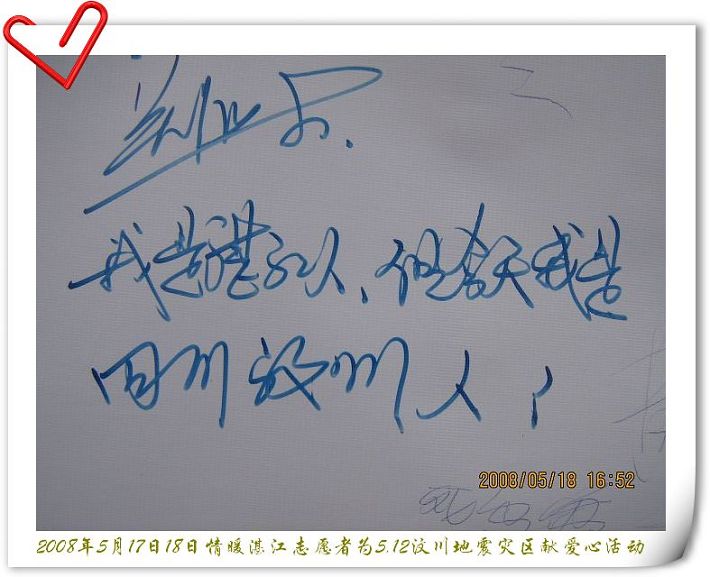 我是湛江人、但今天我是
四川汶川人！
2008/05/18 16:52
2008年5月17日18日情暖湛江志愿者为5.12汶川地震灾区献爱心活动